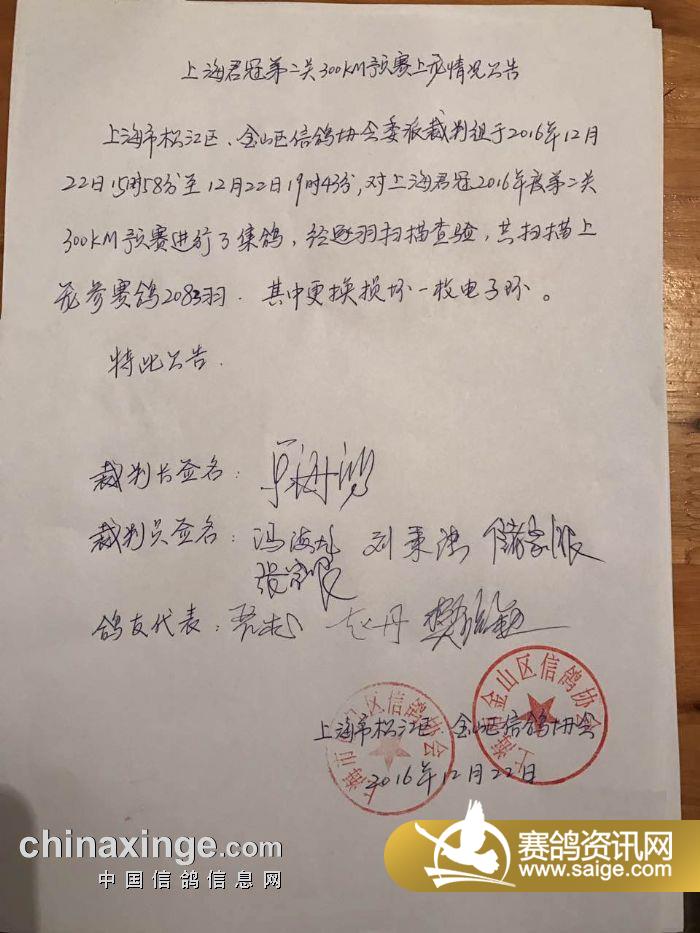 上海君冠第二关300KM预赛上笼情况公告
上海市松江区、金山区信鸽协会委派裁判组于2016年12月
22日15时58分至12月22日19时43分,对上海君冠2016年度第二关
300KM预赛进行了集鸽,经逐羽扫描查验,共扫描上
笼参赛鸽2083羽.其中更换损坏一枚电子环。
特此公告.
裁判长签名:
裁判员签名:冯海 刘
张
鸽友代表: 赵丹
上海市 区信鸽协会
上海 金山区信鸽协会
上海市松江区 金山区信鸽协会
2016年12月22日
chinaxinge.com
中国信鸽信息网
赛鸽资讯网
www.saige.com